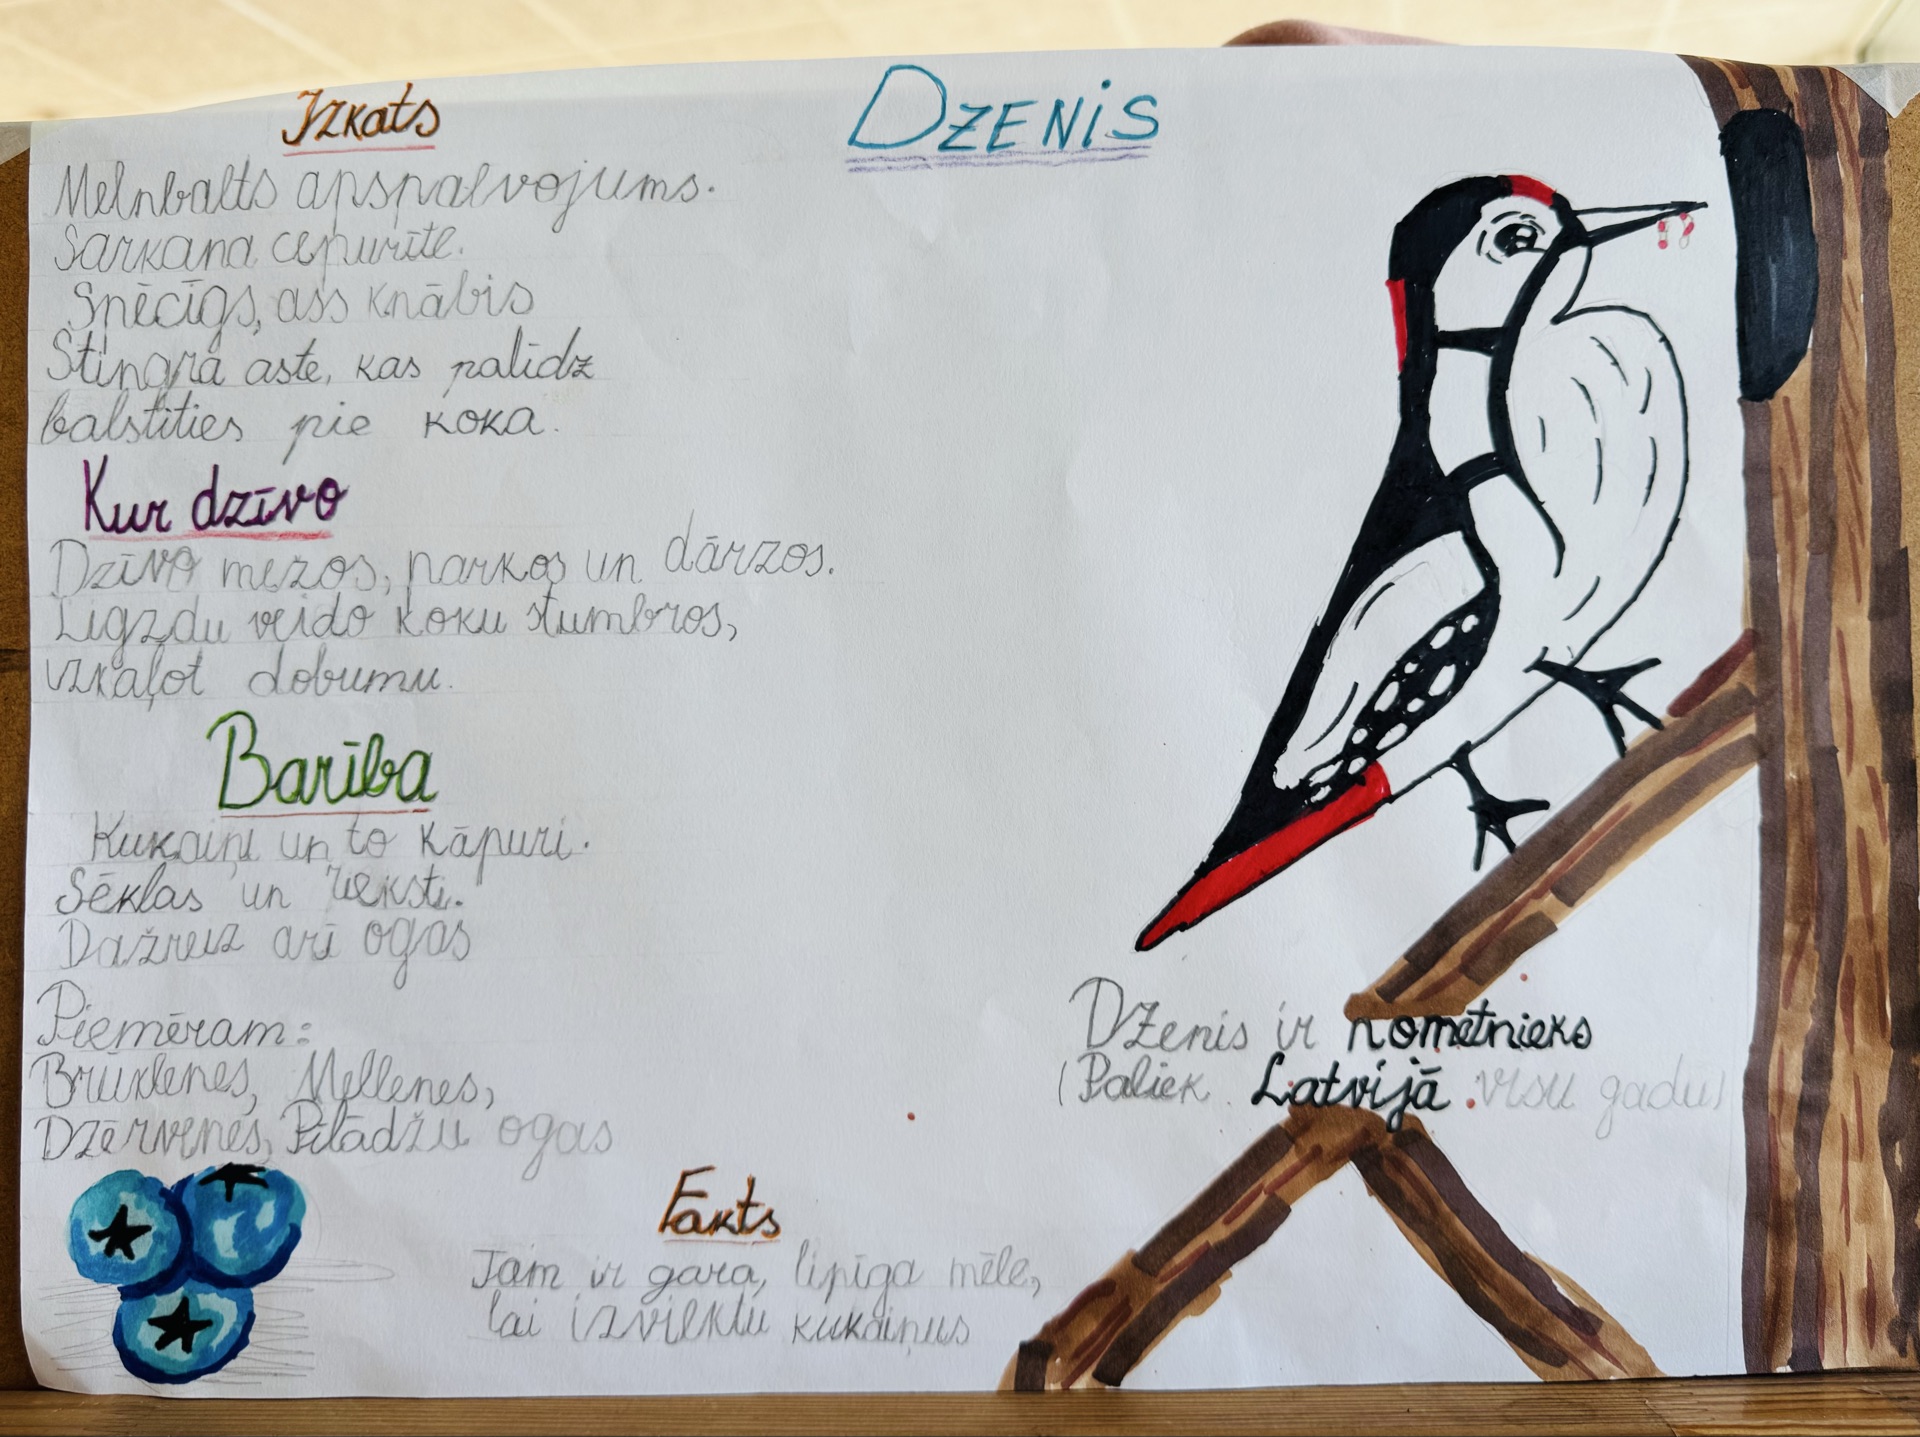 Dzenis
Izkats
Melnbalts apspalvojums.
Sarkana cepurīte.
Spēcīgs, ass knābis
Stingra aste, kas palīdz
balstīties pie koka.
Kur dzīvo
Dzīvo mežos, parkos un dārzos.
Ligzdu veido koku stumbros,
izkaļot dobumu.
Barība
Kukaiņi un to kāpuri.
Sēklas un rieksti.
Dažreiz arī ogas
Piemēram:
Brūklenes, Mellenes,
Dzērvenes, Pīlādžu ogas
Fakts
Tam ir gara, lipīga mēle,
lai izvilktu kukaiņus
Dzenis ir nometnieks
(Paliek Latvijā visu gadu)